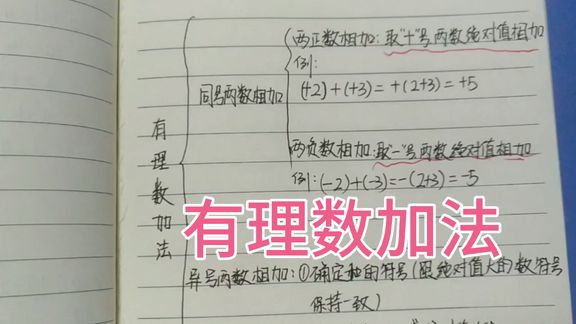 两正数相加:取"+"号,两数绝对值相加
例:
(+2)+(+3)=+(2+3)=+5
同号两数相加
两负数相加:取"-"号,两数绝对值相加
例:(-2)+(-3)=-(2+3)=-5
有理数加法
有理数加法
异号两数相加:①确定和的符号(跟绝对值大的数符号
保持一致)